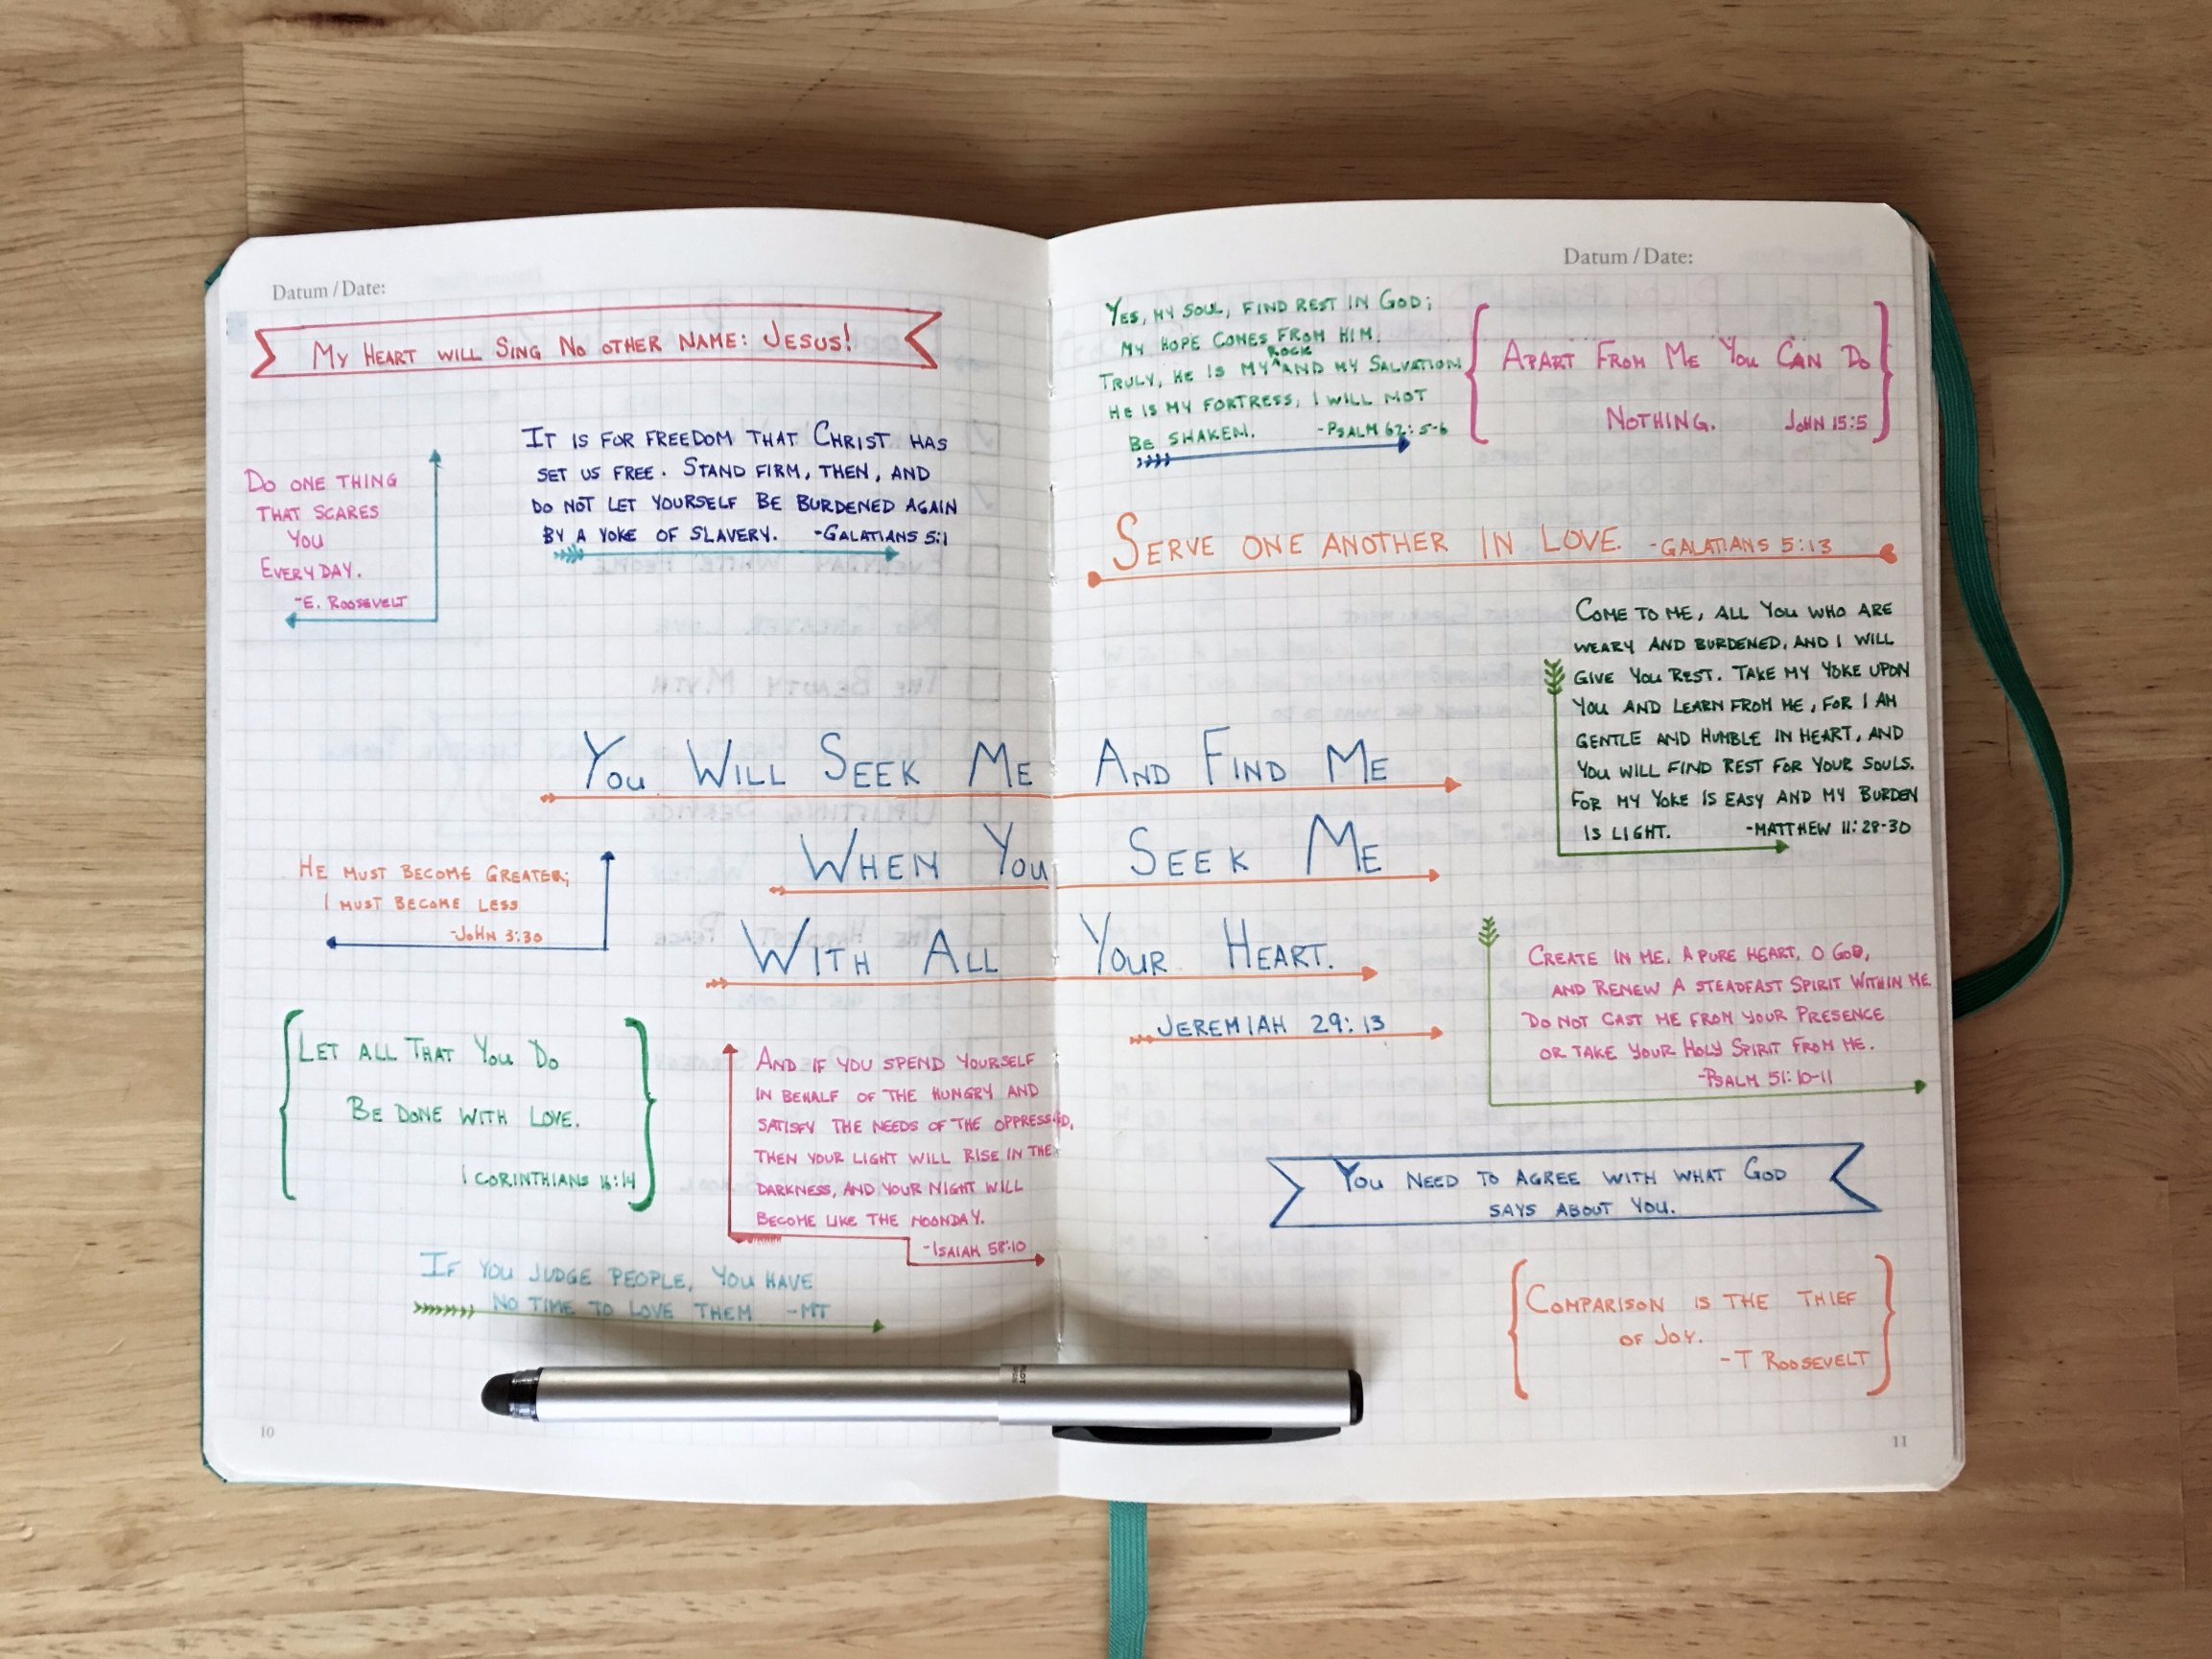 Datum / Date:
MY HEART WILL SING NO OTHER NAME: JESUS!
DO ONE THING
THAT SCARES
YOU
EVERYDAY.
-E. ROOSEVELT
IT IS FOR FREEDOM THAT CHRIST HAS
SET US FREE. STAND FIRM, THEN, AND
DO NOT LET YOURSELF BE BURDENED AGAIN
BY A YOKE OF SLAVERY. -GALATIANS 5:1
YOU WILL SEEK ME AND FIND ME
WHEN YOU SEEK ME
WITH ALL YOUR HEART.
JEREMIAH 29:13
HE MUST BECOME GREATER;
I MUST BECOME LESS
-JOHN 3:30
LET ALL THAT YOU DO
BE DONE WITH LOVE.
1 CORINTHIANS 16:14
AND IF YOU SPEND YOURSELF
IN BEHALF OF THE HUNGRY AND
SATISFY THE NEEDS OF THE OPPRESSED,
THEN YOUR LIGHT WILL RISE IN THE
DARKNESS, AND YOUR NIGHT WILL
BECOME LIKE THE NOONDAY.
-ISAIAH 58:10
IF YOU JUDGE PEOPLE, YOU HAVE
NO TIME TO LOVE THEM -MT
10
Datum / Date:
YES, MY SOUL, FIND REST IN GOD;
MY HOPE COMES FROM HIM.
TRULY, HE IS MY ROCK AND MY SALVATION
HE IS MY FORTRESS, I WILL NOT
BE SHAKEN. -PSALM 62:5-6
APART FROM ME YOU CAN DO
NOTHING. JOHN 15:5
SERVE ONE ANOTHER IN LOVE. -GALATIANS 5:13
COME TO ME, ALL YOU WHO ARE
WEARY AND BURDENED, AND I WILL
GIVE YOU REST. TAKE MY YOKE UPON
YOU AND LEARN FROM ME, FOR I AM
GENTLE AND HUMBLE IN HEART, AND
YOU WILL FIND REST FOR YOUR SOULS.
FOR MY YOKE IS EASY AND MY BURDEN
IS LIGHT. -MATTHEW 11:28-30
CREATE IN ME, A PURE HEART, O GOD,
AND RENEW A STEADFAST SPIRIT WITHIN ME
DO NOT CAST ME FROM YOUR PRESENCE
OR TAKE YOUR HOLY SPIRIT FROM ME.
-PSALM 51:10-11
YOU NEED TO AGREE WITH WHAT GOD
SAYS ABOUT YOU.
COMPARISON IS THE THIEF
OF JOY.
-T ROOSEVELT
11